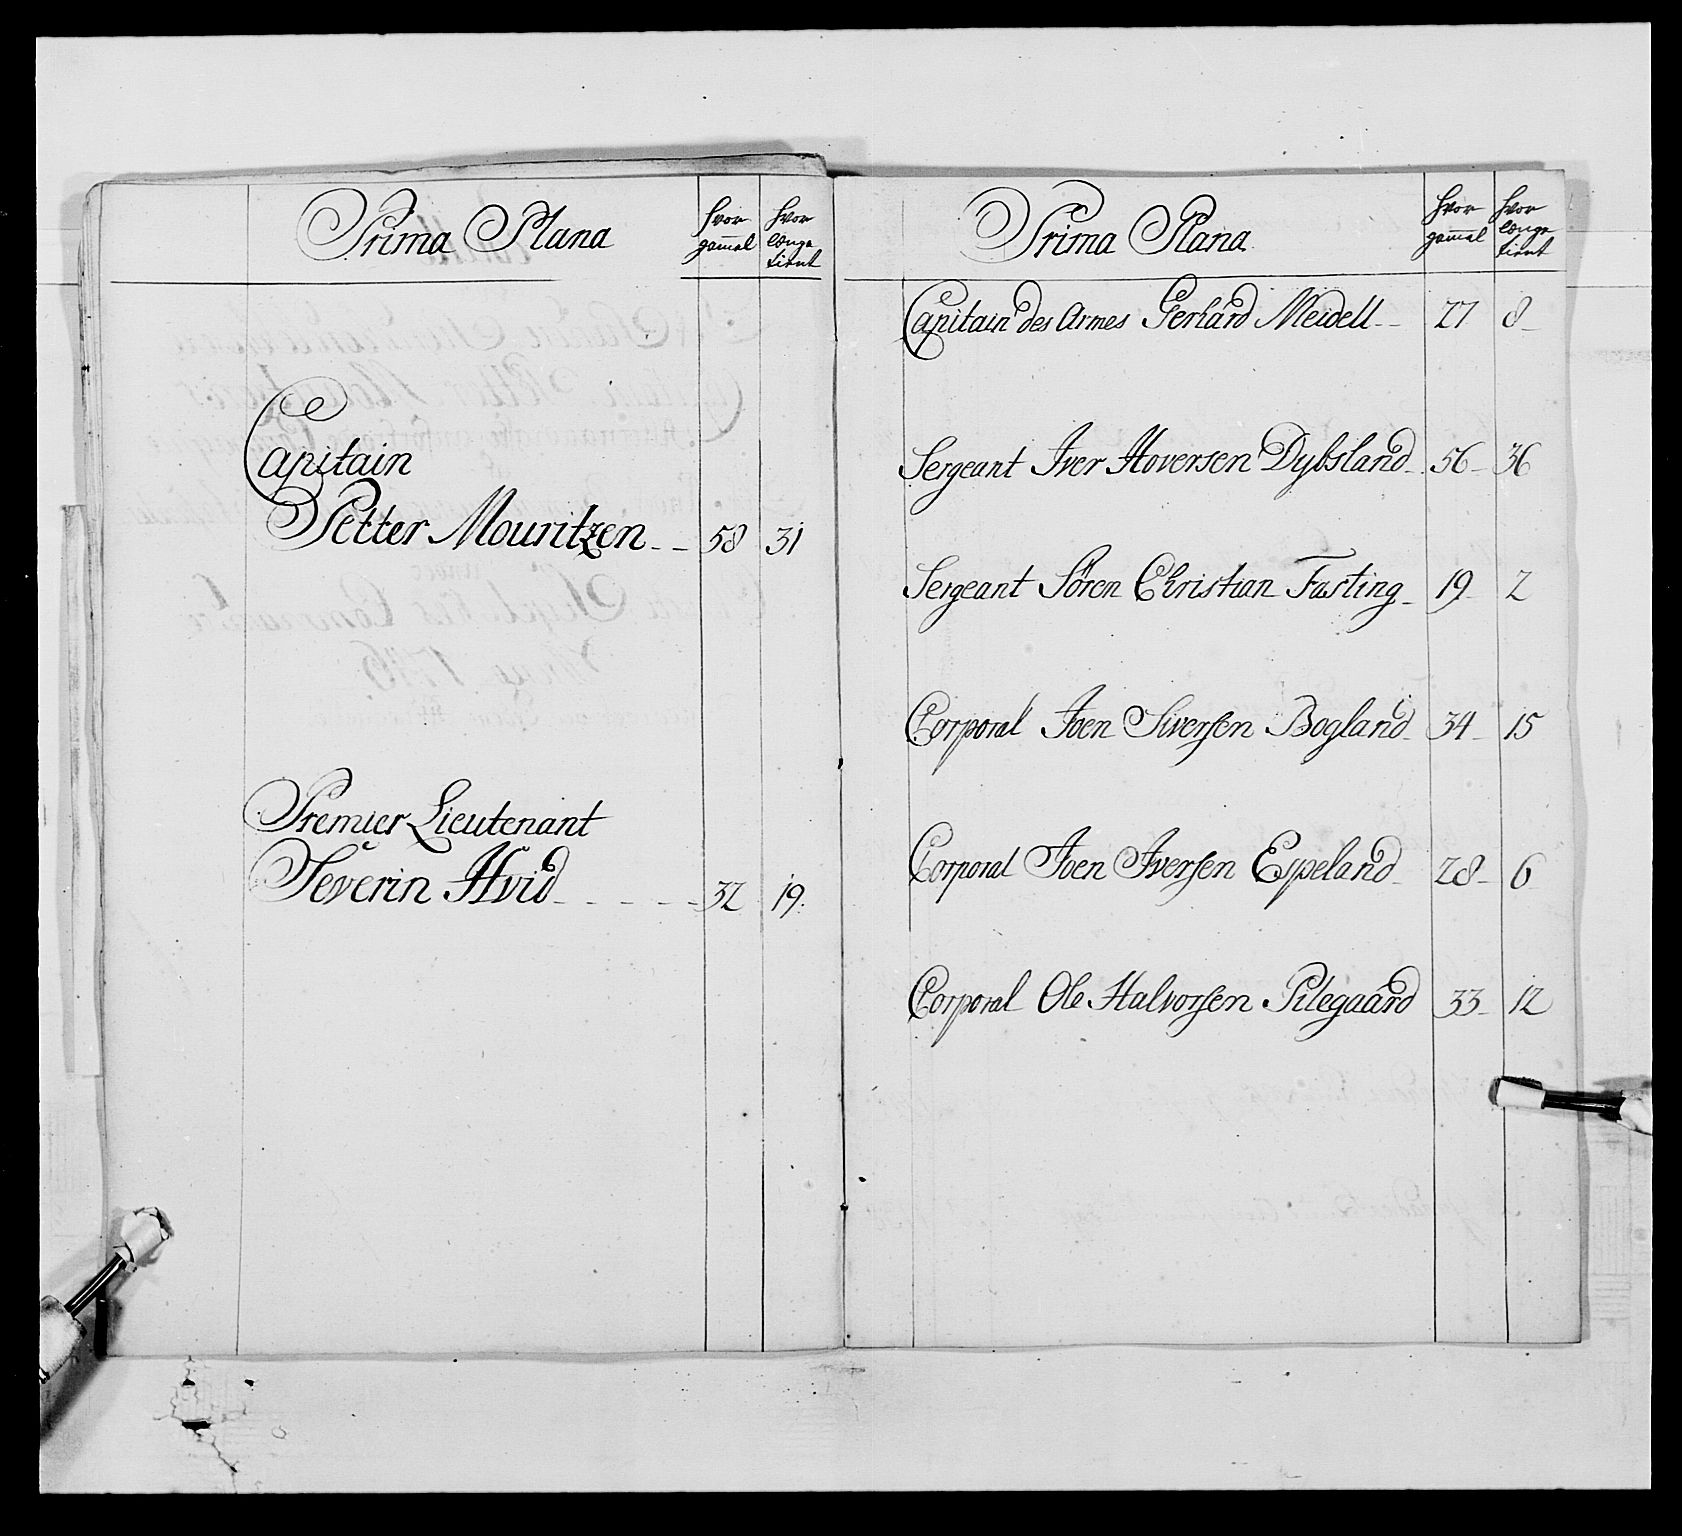 Prima Plana
hvor gam̄el
hvor længe tient
Capitain
Petter Mouritzen 58 31
Premier Lieutenant
Severin Hvid 32 19
Prima Plana
hvor gam̄el
hvor længe tient
Capitain des Armes Gerhard Meidell 27 8
Sergeant Iver Hoversen Dybsland 56 36
Sergeant Sören Christian Fasting 19 2
Corporal Joen Siversen Bogland 34 15
Corporal Joen Iversen Espeland 28 6
Corporal Ole Halvorsen Pilegaard 33 12